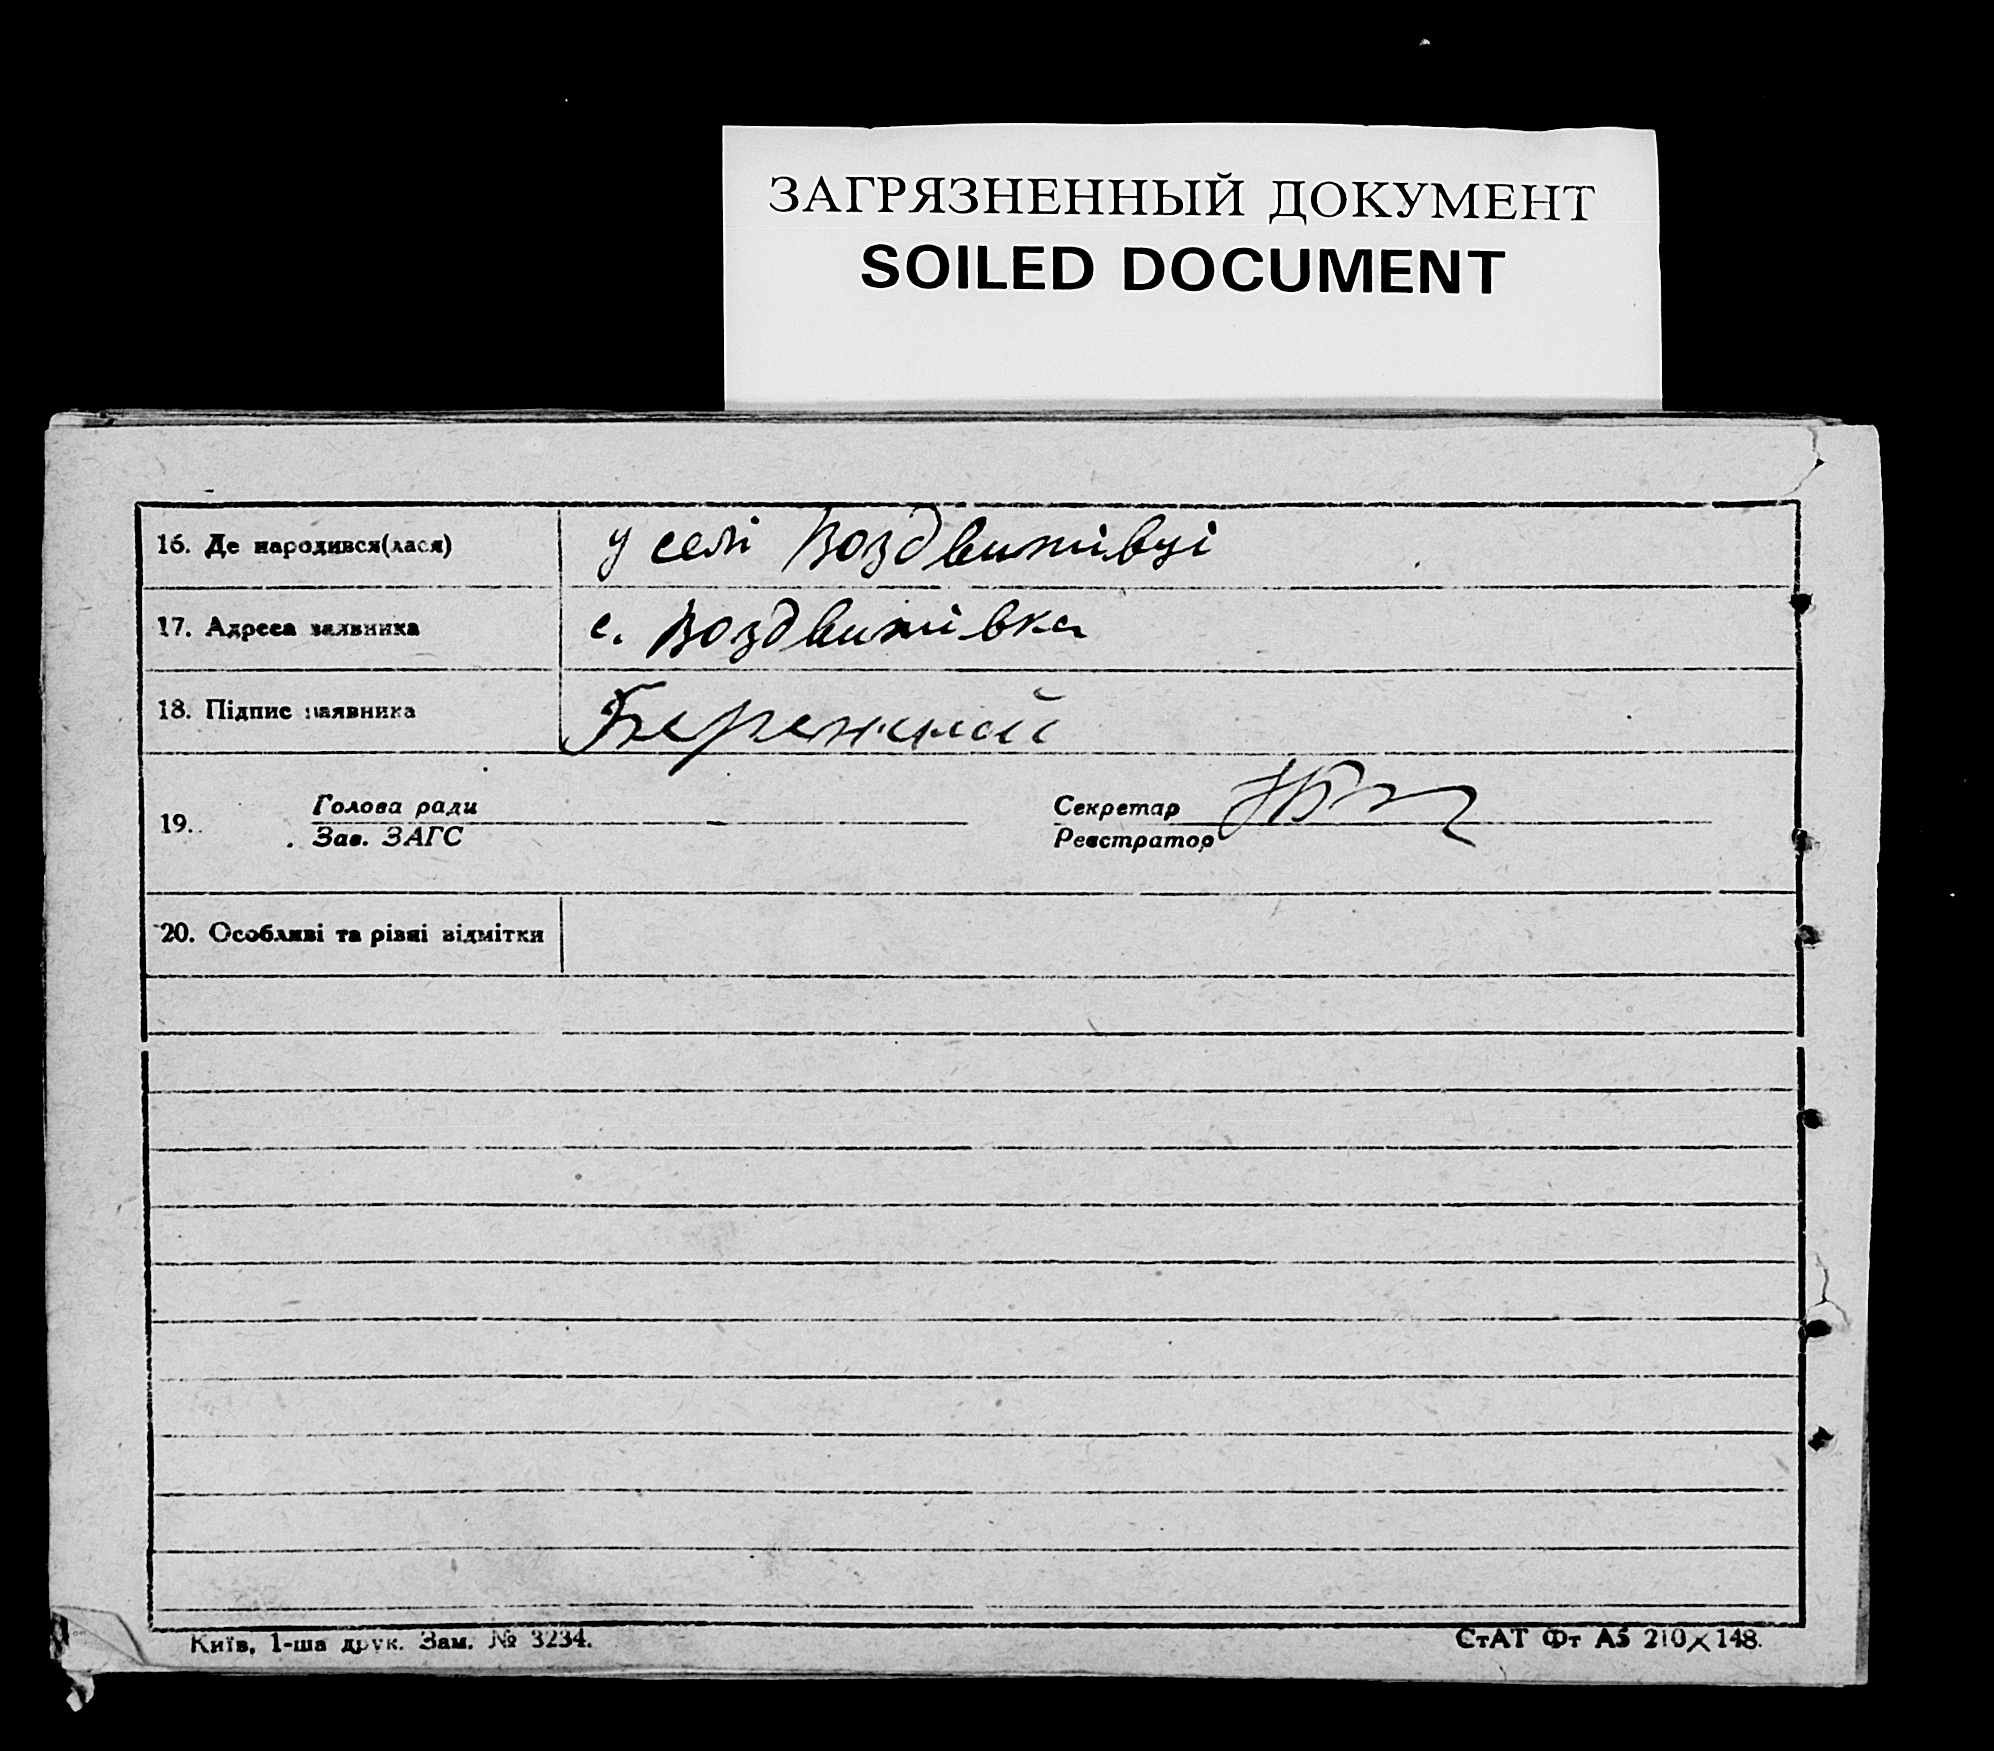 ЗАГРЯЗНЕННЫЙ ДОКУМЕНТ
SOILED DOCUMENT
16. Де народився(лася) у селі Воздвижівці
17. Адреса заявника с. Воздвижівка
18. Підпис заявника Бережной
19. Голова ради Секретар
Зав. ЗАГС Реєстратор
20. Особливі та різні відмітки
Київ, 1-ша друк. Зам. № 3234.
СтАТ Фт А5 210×148.